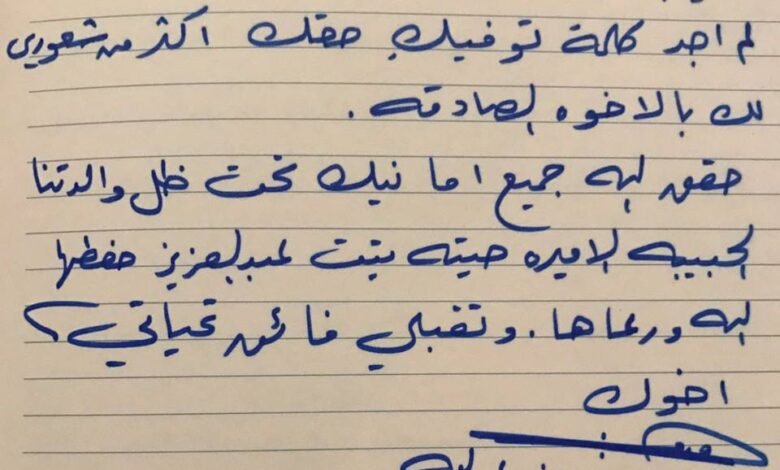 لم اجد كلمة توفيك حقك اكثر من شعوري
لك بالاخوه الصادقه .
حقق الله جميع امانيك تحت ظل والدتنا
الحبيبه الاميره صيته بنت عبدالعزيز حفظها
الله ورعاها . وتقبلي فائق تحياتي ؟
اخوك